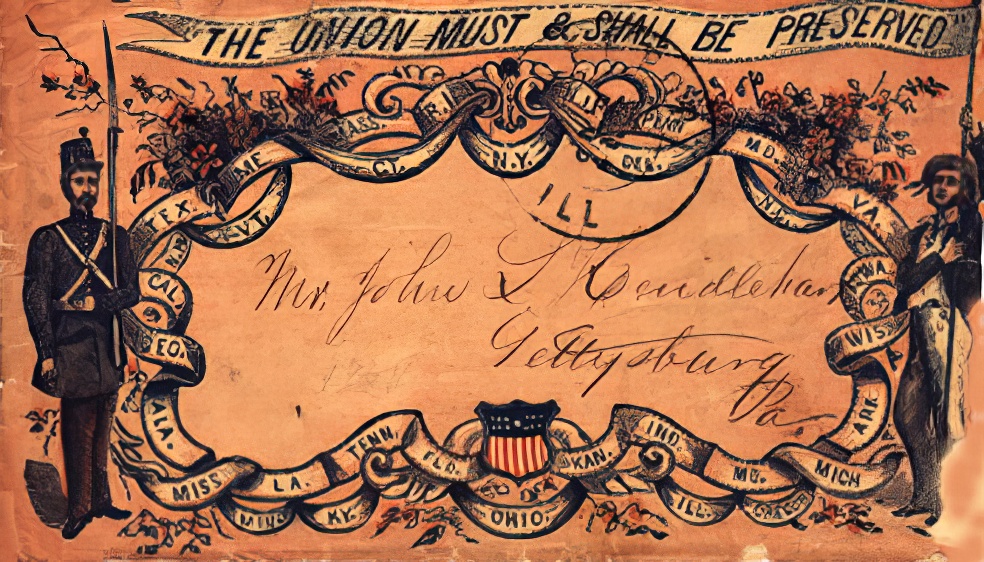 THE UNION MUST & SHALL BE PRESERVED
MAS. R.I.
N.Y.
DEL.
ME
CT.
MD.
ILL
TEX.
VT.
VA.
CAL.
IWA.
Mr. John L
GEO.
WIS.
Gettysburg
Pa.
ALA.
ARK
TENN
IND.
FLO.
KAN.
MISS.
LA.
MICH
MINN
KY.
OHIO.
ILL.